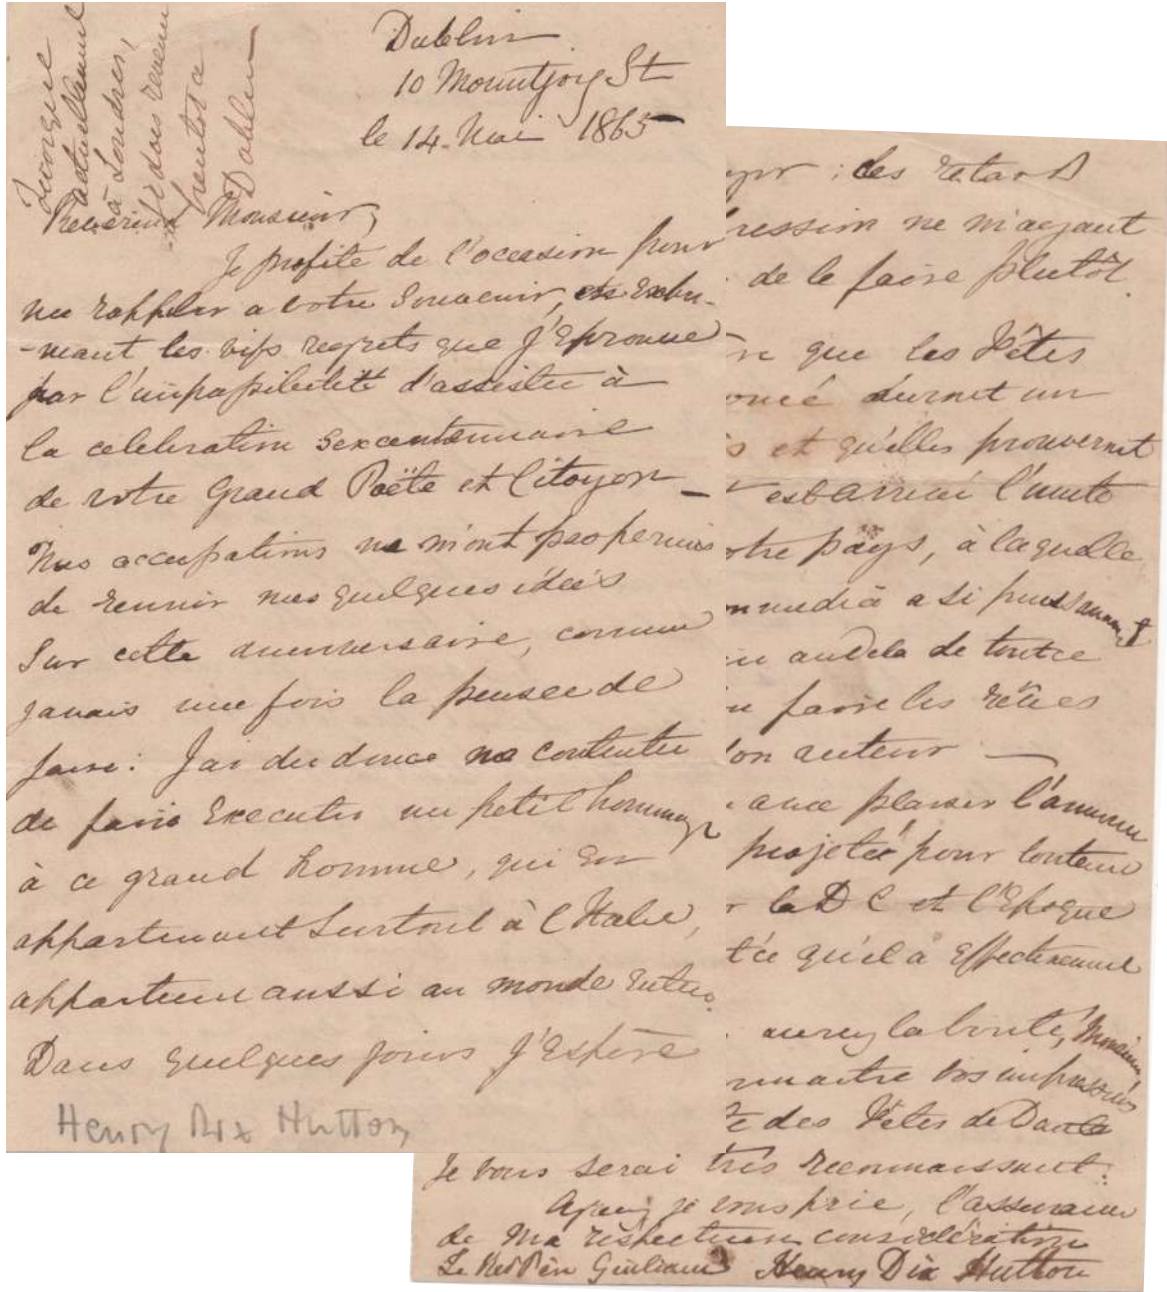 Dublin
10 Mountjoy St
le 14. Mai 1865
Quoique
actuellement
à Londres,
je dois revenir
bientot a
Dublin
Reverend Monsieur,
Je profite de l'occasion pour
me rappeler a votre Souvenir, en Expri-
-mant les vifs regrets que j'Eprouve
par l'impossibilité d'assister à
la celebration Sexcentennaire
de votre Grand Poëte et Citoyen —
Mes occupations ne m'ont pas permis
de reunir mes quelques idées
Sur cette anniversaire, comme
j'avais une fois la pensee de
faire: J'ai du donc me contenter
de faire Executer un petit hommage
à ce grand homme, qui en
appartenant Surtout à l'Italie,
appartient aussi au monde Entier.
Dans quelques jours j'Espère
Henry Dix Hutton
des retard
ression ne m'ayant
de le faire plutôt.
que les Fêtes
oncé auront un
s et qu'elles prouveront
est arrivé l'unité
otre pays, à laquelle
media a si puissamment
au dela de toutes
faire les rêves
son auteur —
avec plaisir l'annonce
projetée pour
la D C et l'Epoque
qu'il a Effectivement
aurez la bonté, Monsieur,
nnaitre vos impressions
des Fêtes de Dante
Je vous serai très reconnaissant.
Agreez je vous prie, l'assurance
de Ma respectueuse consideration
Le Rev Père Giuliani Henry Dix Hutton